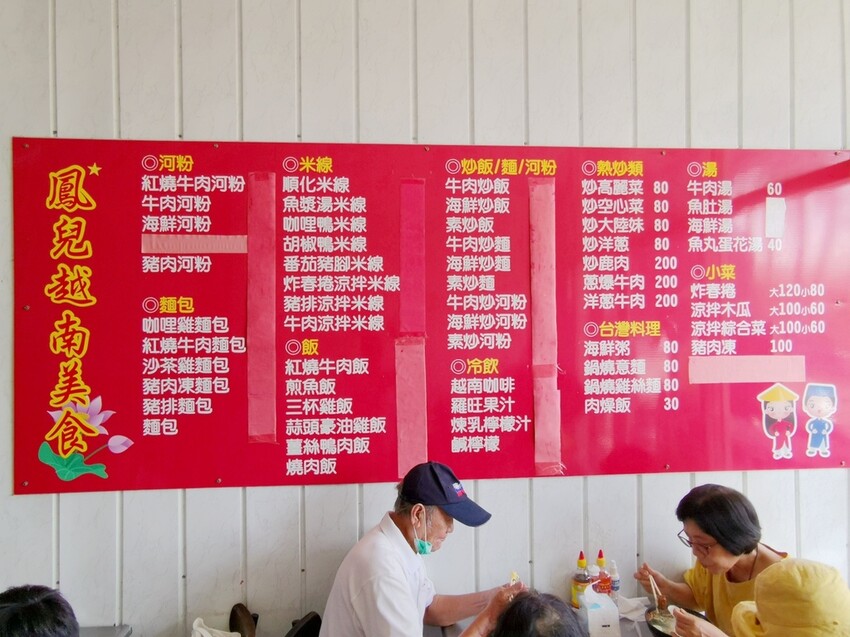 鳳兒越南美食
◎河粉
紅燒牛肉河粉
牛肉河粉
海鮮河粉
豬肉河粉
◎麵包
咖哩雞麵包
紅燒牛肉麵包
沙茶雞麵包
豬肉凍麵包
豬排麵包
麵包
◎米線
順化米線
魚漿湯米線
咖哩鴨米線
胡椒鴨米線
番茄豬腳米線
炸春捲涼拌米線
豬排涼拌米線
牛肉涼拌米線
◎飯
紅燒牛肉飯
煎魚飯
三杯雞飯
蒜頭豪油雞飯
薑絲鴨肉飯
燒肉飯
◎炒飯/麵/河粉
牛肉炒飯
海鮮炒飯
素炒飯
牛肉炒麵
海鮮炒麵
素炒麵
牛肉炒河粉
海鮮炒河粉
素炒河粉
◎冷飲
越南咖啡
羅旺果汁
煉乳檸檬汁
鹹檸檬
◎熱炒類
炒高麗菜 80
炒空心菜 80
炒大陸妹 80
炒洋蔥 80
炒鹿肉 200
蔥爆牛肉 200
洋蔥牛肉 200
◎台灣料理
海鮮粥 80
鍋燒意麵 80
鍋燒雞絲麵 80
肉燥飯 30
◎湯
牛肉湯 60
魚肚湯
海鮮湯
魚丸蛋花湯 40
◎小菜
炸春捲 大120小80
涼拌木瓜 大100小60
涼拌綜合菜 大100小60
豬肉凍 100